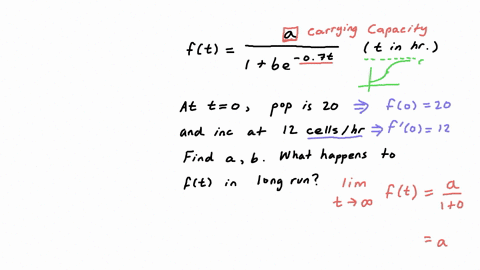 a carrying Capacity
f(t) = a / 1 + be^-0.7t (t in hr.)
At t=0, pop is 20 ⇒ f(0) = 20
and inc at 12 cells/hr ⇒ f'(0) = 12
Find a, b. What happens to
f(t) in long run? lim t→∞ f(t) = a / 1+0
= a